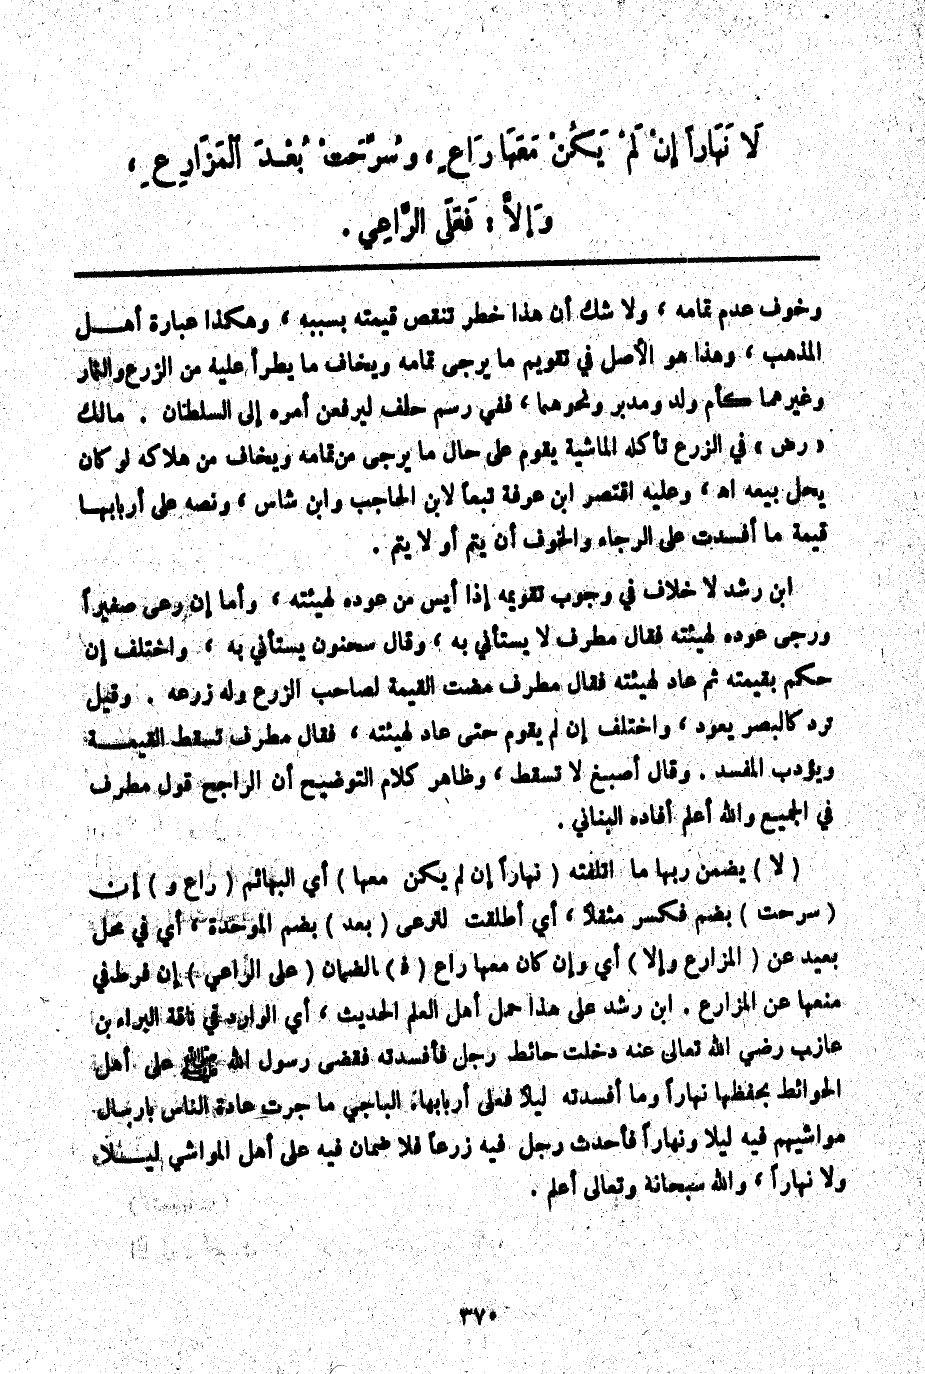 لَا نَهَاراً إِنْ لَمْ يَكُنْ مَعَهَا رَاعٍ ، وسُرِّحَتْ بُعْدَ ٱلْمَزَارِعِ ،
وَإِلاَّ : فَعَلَى الرَّاعِي .
وخوف عدم تمامه ، ولا شك أن هذا خطر تنقص قيمته بسببه ، وهكذا عبارة أهل
المذهب ، وهذا هو الأصل في تقويم ما يرجى تمامه ويخاف ما يطرأ عليه من الزرع والثمار
وغيرهما كأم ولد ومدبر ونحوهما ، ففي رسم حلف ليرفعن أمره إلى السلطان . مالك
« رض » في الزرع تأكله الماشية يقوم على حال ما يرجى من تمامه ويخاف من هلاكه لو كان
يحل بيعه اه ، وعليه اقتصر ابن عرفة تبعاً لابن الحاجب وابن شاس ، ونصه على أربابها
قيمة ما أفسدت على الرجاء والخوف أن يتم أو لا يتم .
ابن رشد لا خلاف في وجوب تقويمه إذا أيس من عوده لهيئته ، وأما إن رعى صغيراً
ورجى عوده لهيئته فقال مطرف لا يستأني به ، وقال سحنون يستأني به ، واختلف إن
حكم بقيمته ثم عاد لهيئته فقال مطرف مضت القيمة لصاحب الزرع وله زرعه . وقيل
ترد كالبصر يعود ، واختلف إن لم يقوم حتى عاد لهيئته ، فقال مطرف تسقط القيمة
ويؤدب المفسد . وقال أصبغ لا تسقط ، وظاهر كلام التوضيح أن الراجح قول مطرف
في الجميع والله أعلم أفاده البناني .
( لا ) يضمن ربها ما اتلفته ( نهاراً إن لم يكن معها ) أي البهائم ( راع و ) إن
( سرحت ) بضم فكسر مثقلاً ، أي أطلقت للرعى ( بعد ) بضم الموحدة ، أي في محل
بعيد عن ( المزارع وإلا ) أي وإن كان معها راع ( ف ) الضمان ( على الراعي ) إن فرط في
منعها عن المزارع . ابن رشد على هذا حمل أهل العلم الحديث ، أي الوارد في ناقة البراء بن
عازب رضي الله تعالى عنه دخلت حائط رجل فأفسدته فقضى رسول الله ﷺ على أهل
الحوائط بحفظها نهاراً وما أفسدته ليلاً فعلى أربابها. الباجي ما جرت عادة الناس بارسال
مواشيهم فيه ليلا ونهاراً فأحدث رجل فيه زرعاً فلا ضمان فيه على أهل المواشي ليلا
ولا نهاراً ، والله سبحانة وتعالى أعلم .
٣٧٠